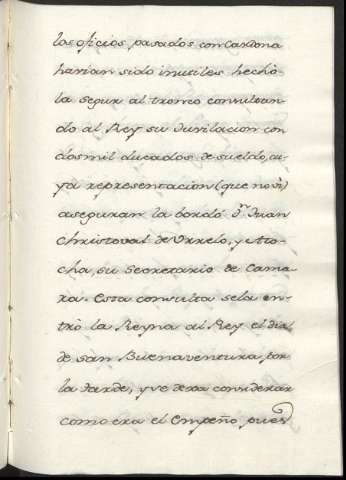 los oficios pasados con Cardona
harian sido inutiles hechò
la segur al tronco consultan-
do al Rey su Juvilacion con
dos mil ducados de sueldo, cu-
ya representacion (que no vi)
aseguran la bordó Dn. Juan
Christoval de Urrelo, y Ato-
cha, su Secretario de Cama-
ra. Esta consulta se la en-
trò la Reyna al Rey el dia
de San Buenaventura por
la tarde, y se dexa considerar
como era el empeño, pues